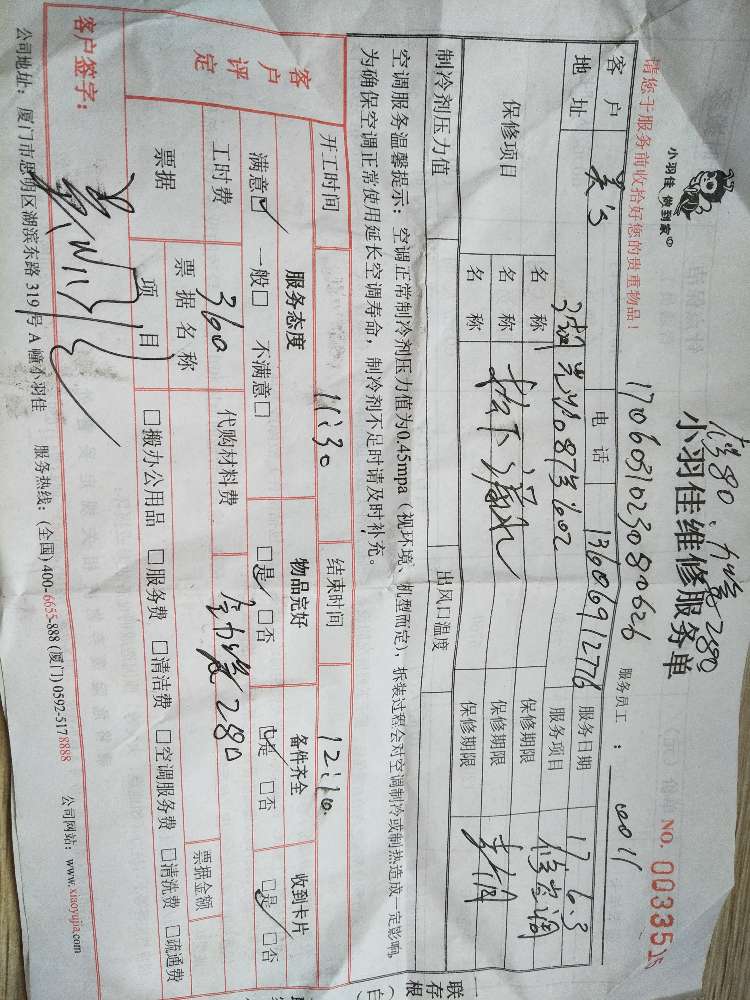 修80、加。280
小羽佳 做到家
小羽佳维修服务单
NO. 0033515
1706031023080626
服务员工: 0011
请您于服务前收拾好您的贵重物品!
客户 电话 13606912776 服务日期 17 6.3
地址 602 服务项目 修空调
保修项目 名称 保修期限
名称 松下 漏水 保修期限
名称 保修期限
制冷剂压力值 出风口温度
空调服务温馨提示:空调正常制冷剂压力值为0.45mpa(视环境、机型而定),拆装过程会对空调制冷或制热造成一定影响。
为确保空调正常使用延长空调寿命,制冷剂不足时请及时补充。
开工时间 11:30 结束时间 12:10.
客户评定 服务态度 物品完好 备件齐全 收到卡片
满意☑ 一般□ 不满意□ ☑是 □否 ☑是 □否 ☑是 □否
工时费 360 代购材料费 280
票据 票据名称 票据金额
项目 □搬办公用品 □服务费 □清洁费 □空调服务费 □清洗费 □疏通费
客户签字:
公司地址:厦门市思明区湖滨东路319号A幢小羽佳 服务热线:(全国)400-6655-888 (厦门)0592-5178888 公司网站:www.xiaoyujia.com
联存根(白